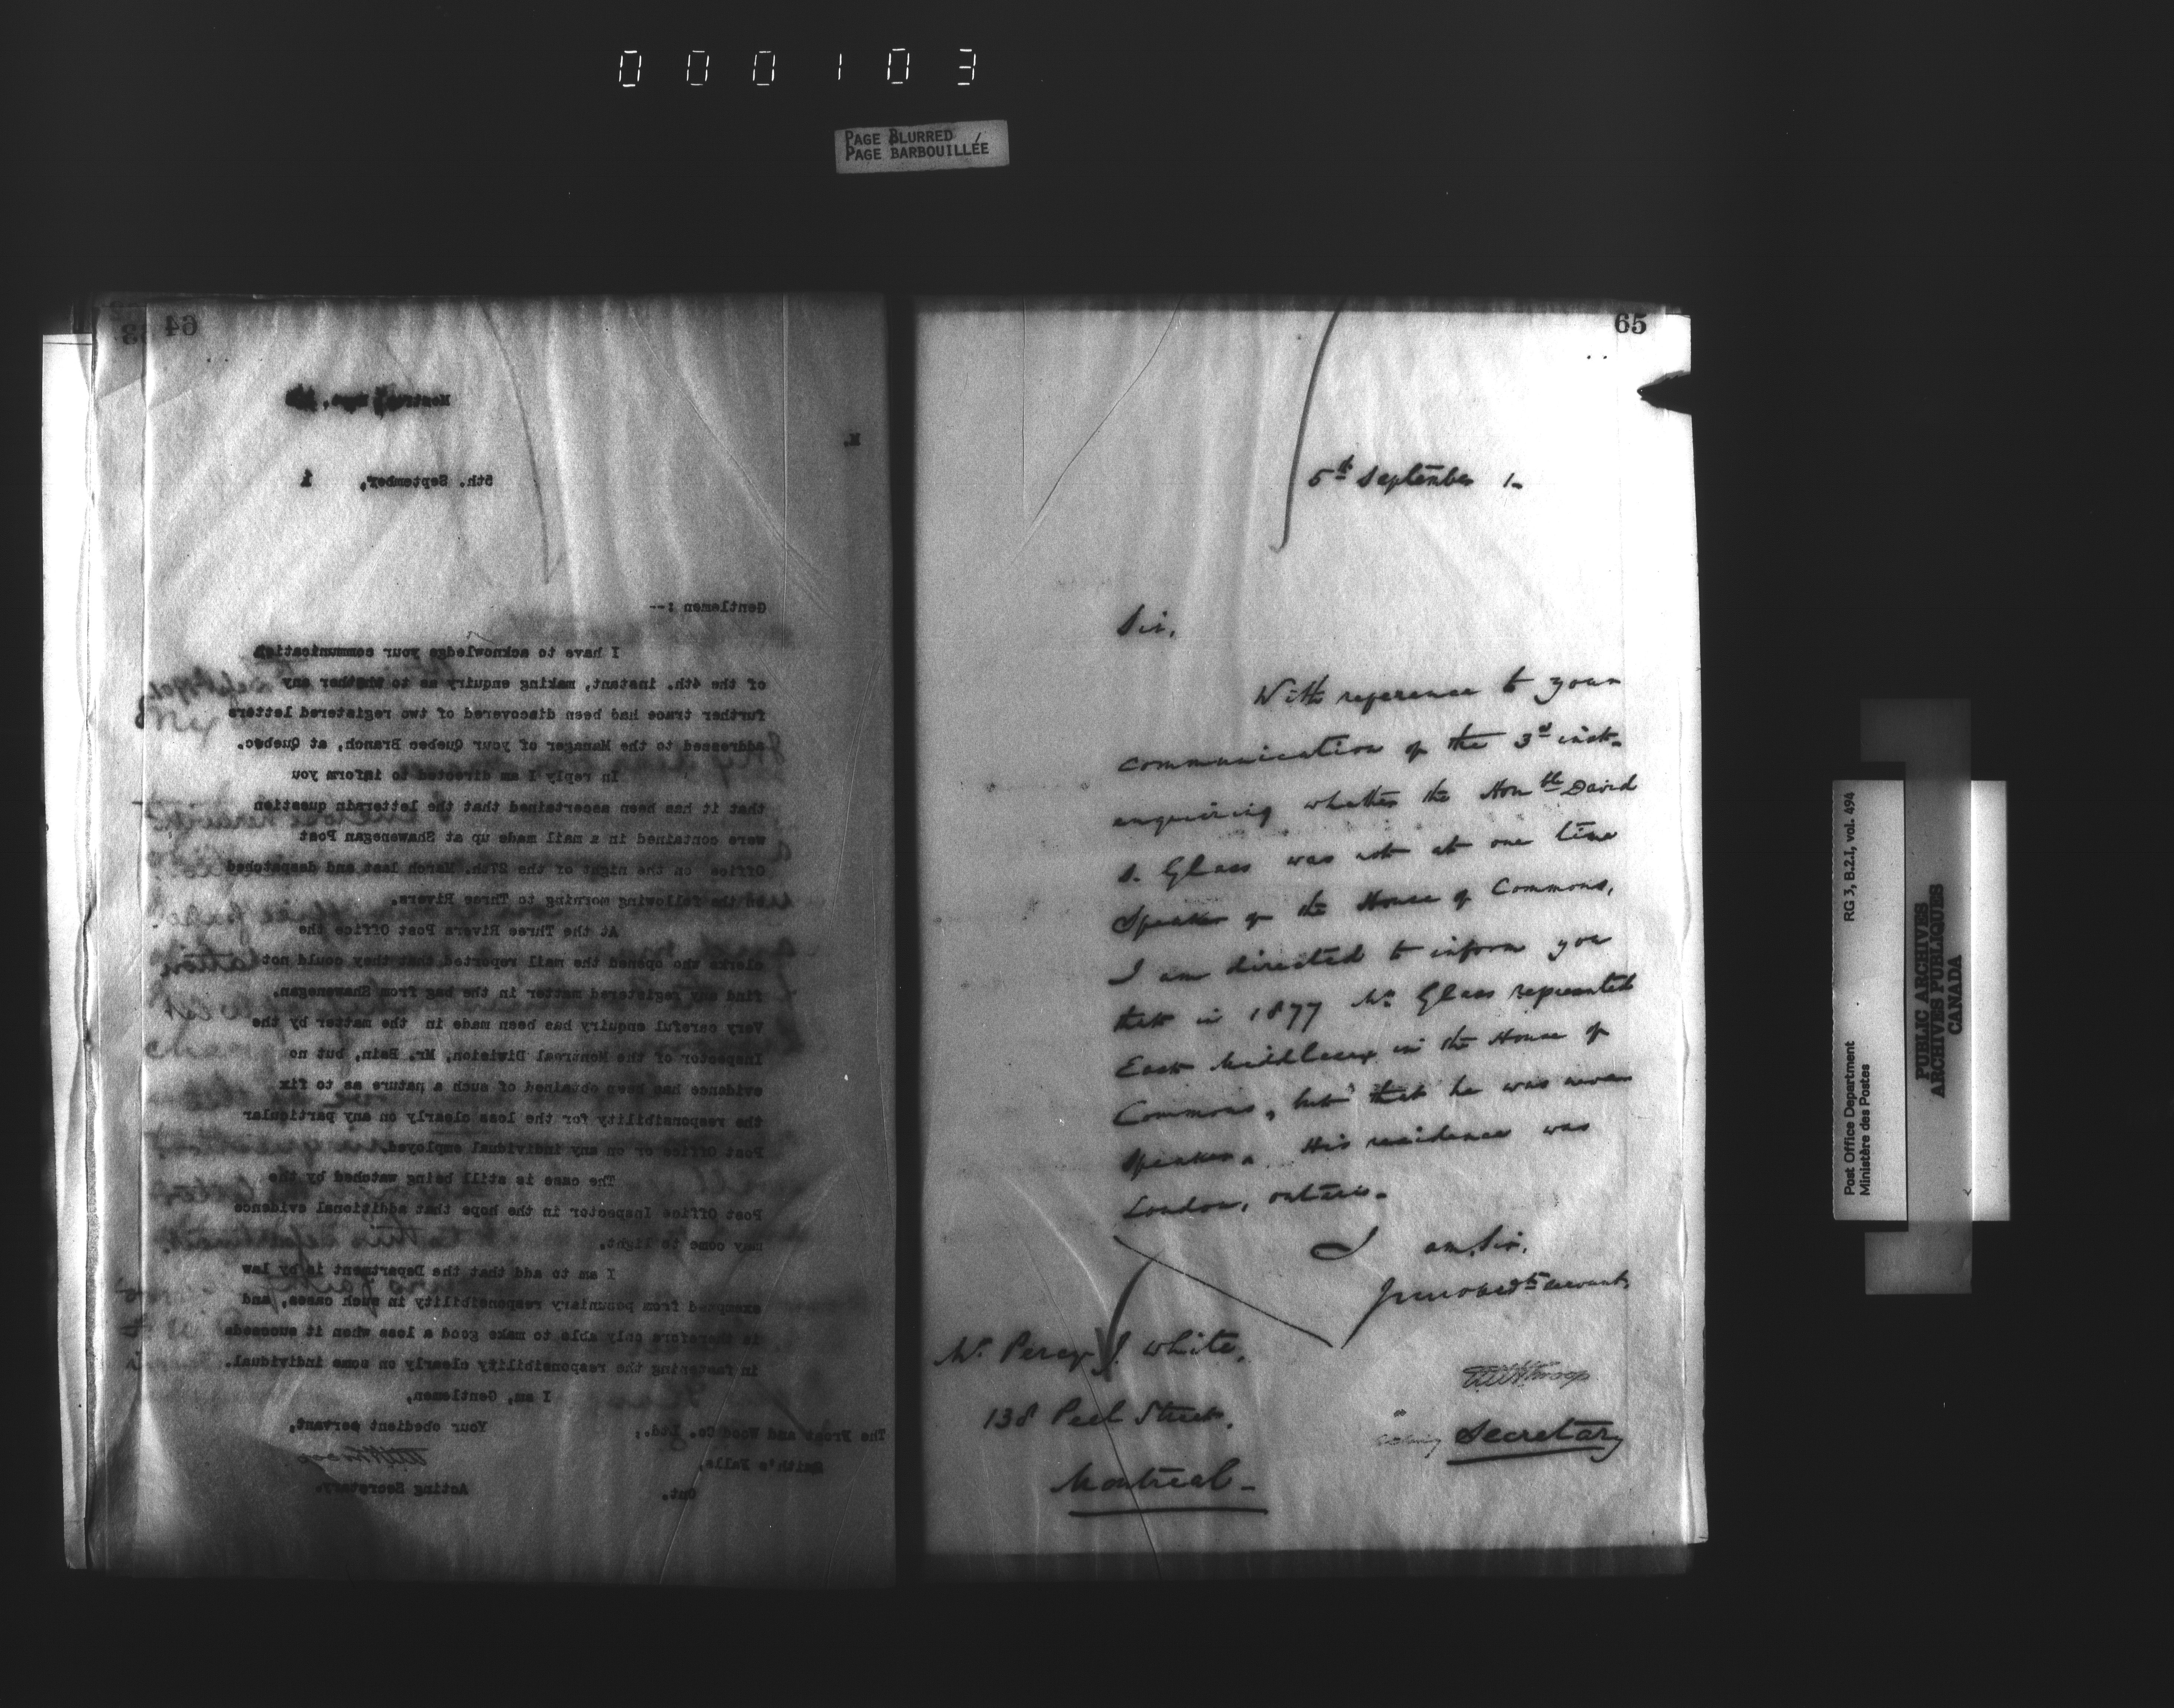 000103
PAGE BLURRED
PAGE BARBOUILLÉE
64
M.
5th. September, 1
Gentlemen :--
I have to acknowledge your communication
of the 4th. instant, making enquiry as to whether any
further trace had been discovered of two registered letters
addressed to the Manager of your Quebec Branch, at Quebec.
In reply I am directed to inform you
that it has been ascertained that the letters in question
were contained in a mail made up at Shawenegan Post
Office on the night of the 27th. March last and despatched
on the following morning to Three Rivers.
At the Three Rivers Post Office the
clerks who opened the mail reported that they could not
find any registered matter in the bag from Shawenegan.
Very careful enquiry has been made in the matter by the
Inspector of the Montreal Division, Mr. Bain, but no
evidence has been obtained of such a nature as to fix
the responsibility for the loss clearly on any particular
Post Office or on any individual employed.
The case is still being watched by the
Post Office Inspector in the hope that additional evidence
may come to light.
I am to add that the Department is by law
exempted from pecuniary responsibility in such cases, and
is therefore only able to make good a loss when it succeeds
in fastening the responsibility clearly on some individual.
I am, Gentlemen,
Your obedient servant,
The Frost and Wood Co. Ltd.,
Smith's Falls,
Acting Secretary.
Ont.
65
5th September 1-
Sir,
With reference to your
communication of the 3rd inst.
enquiring whether the Honble David
S. Glass was not at one time
Speaker of the House of Commons,
I am directed to inform you
that in 1877 Mr. Glass represented
East Middlesex in the House of
Commons, but that he was never
Speaker. His residence was
London, Ontario.
I am, Sir,
Your obedt servant,
Mr. Percy J. White,
138 Peel Street,
Montreal -
Acting Secretary
Post Office Department RG 3, B.2.1, vol. 494
Ministère des Postes
PUBLIC ARCHIVES
ARCHIVES PUBLIQUES
CANADA